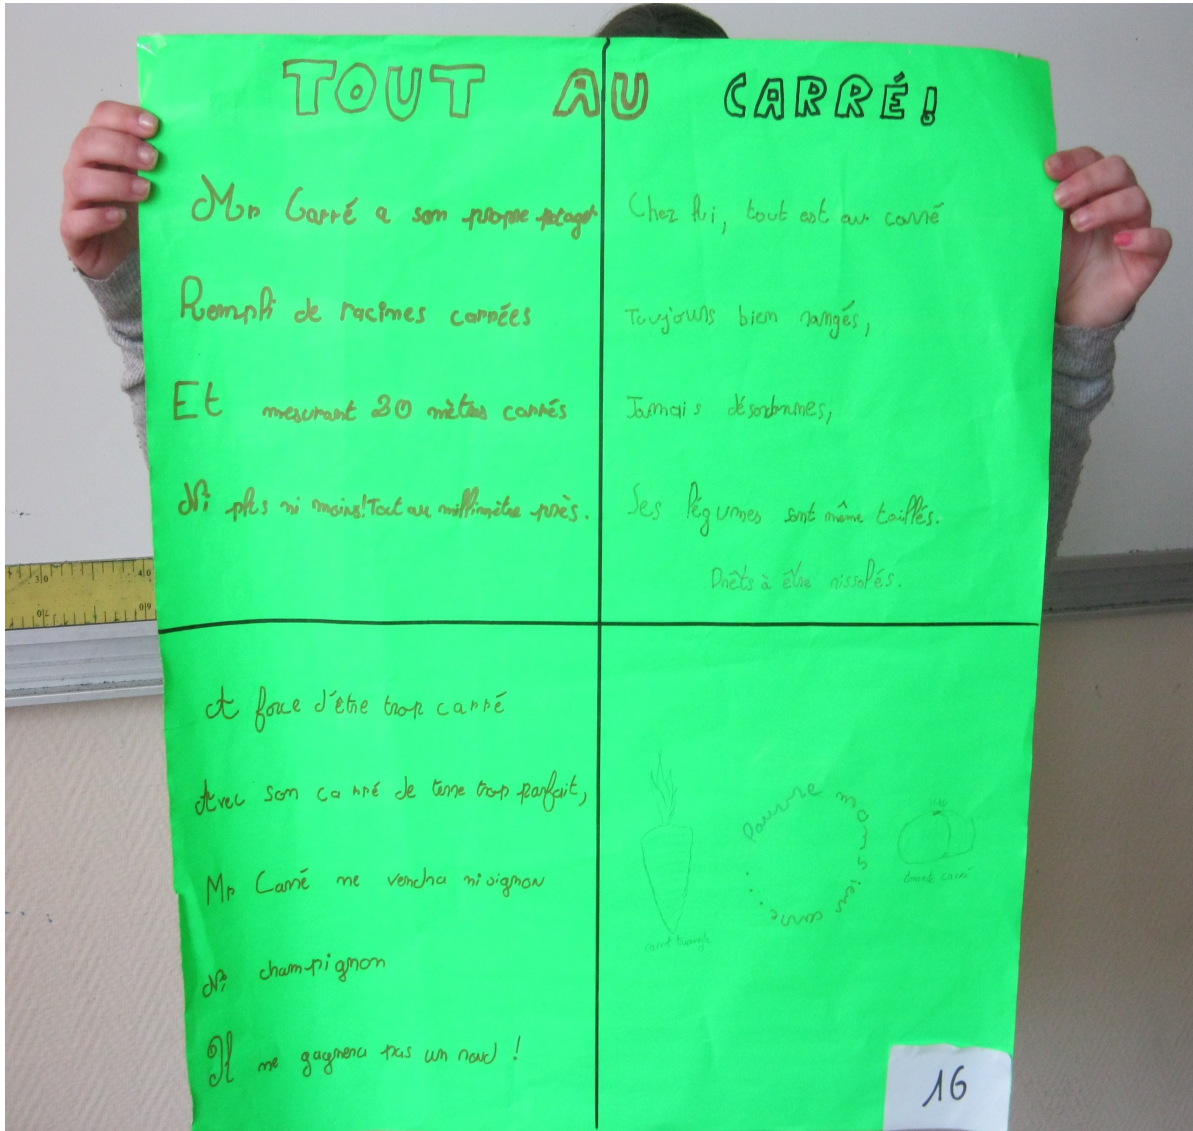 TOUT AU CARRÉ!
Mr Carré a son propre potager
Rempli de racines carrées
Et mesurant 20 mètres carrés
Ni plus ni moins! Tout au millimètre près.
Chez lui, tout est au carré
Toujours bien rangés,
Jamais désordonnés,
Ses légumes sont même taillés.
Prêts à être rissolés.
A force d'être trop carré
Avec son carré de terre trop parfait,
Mr Carré ne vendra ni oignon
Ni champignon
Il ne gagnera pas un rond !
Pauvre monsieur carré...
carré
16
30
40